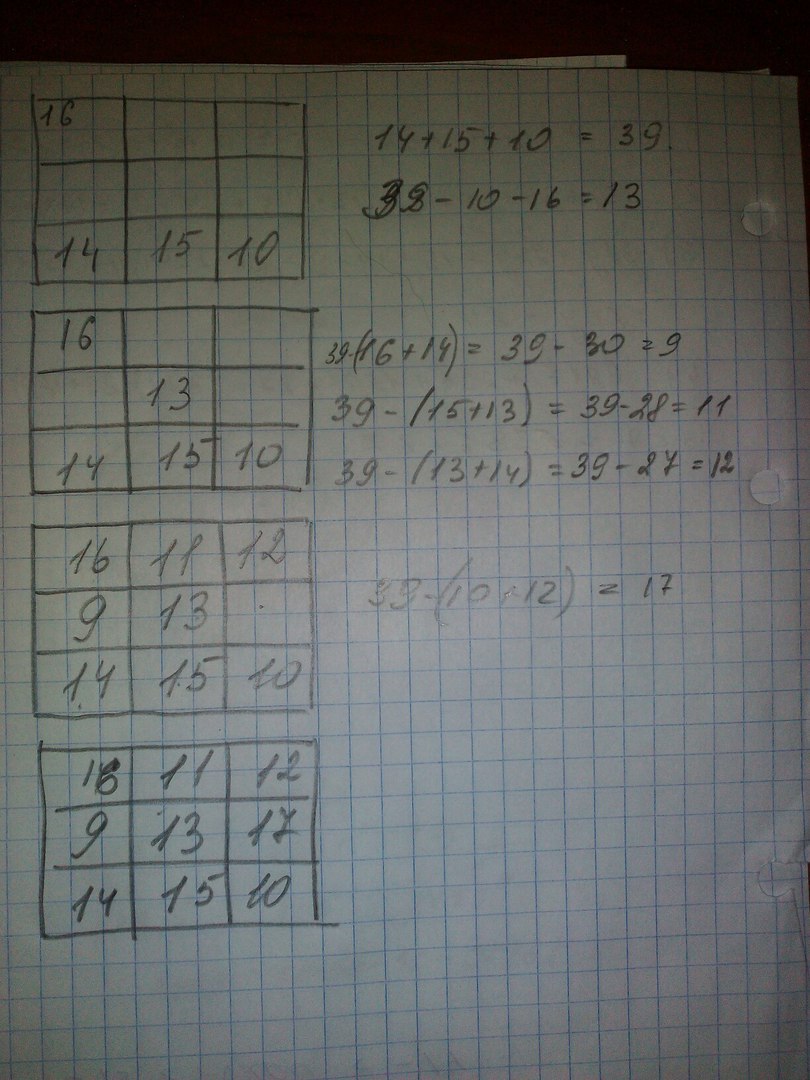 16
14 15 10
14+15+10 = 39.
39 - 10 - 16 = 13
16
13
14 15 10
39-(16+14) = 39 - 30 = 9
39 - (15+13) = 39-28 = 11
39 - (13+14) = 39 - 27 = 12
16 11 12
9 13
14 15 10
39-(10+12) = 17
16 11 12
9 13 17
14 15 10